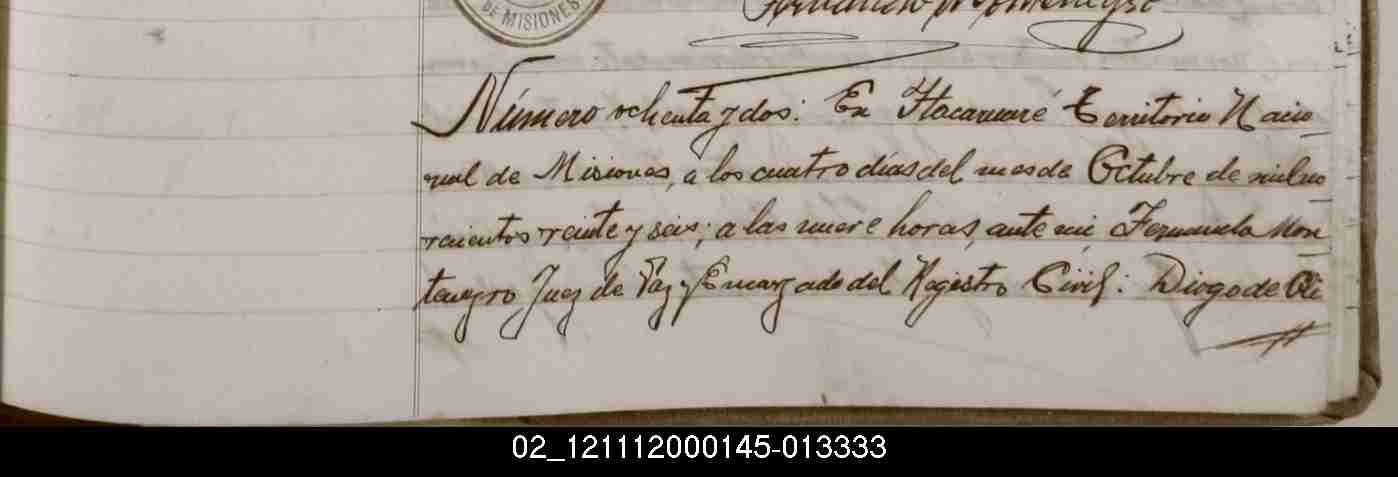 DE MISIONES
Número ochenta y dos: En Itacaruaré Territorio Nacio
nal de Misiones, a los cuatro días del mes de Octubre de mil no
vecientos veinte y seis; a las nueve horas, ante mi Fernando Mon
tenegro Juez de Paz y Encargado del Registro Civil: Diogo de Oli
02_121112000145-013333